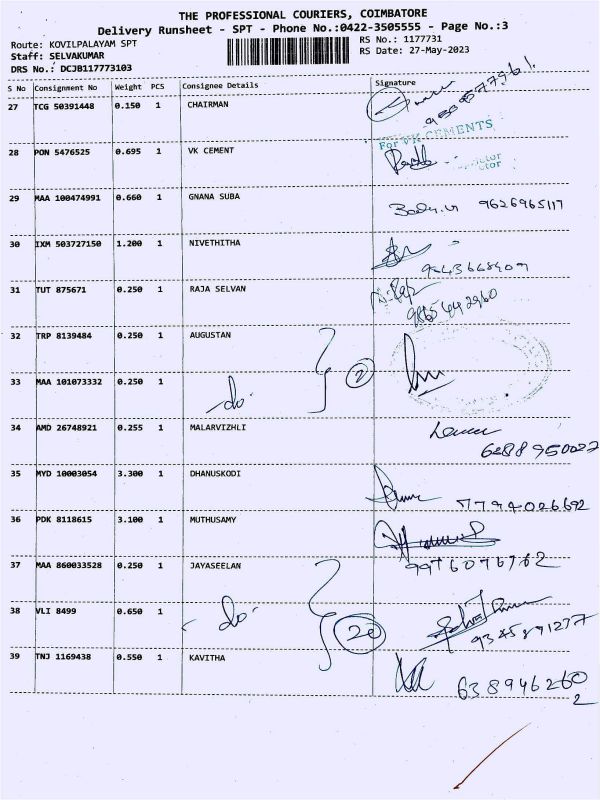 THE PROFESSIONAL COURIERS, COIMBATORE
Delivery Runsheet - SPT - Phone No.:0422-3505555 - Page No.:3
Route: KOVILPALAYAM SPT
RS No.: 1177731
Staff: SELVAKUMAR
RS Date: 27-May-2023
DRS No.: DCJB117773103
S No Consignment No Weight PCS Consignee Details Signature
27 TCG 50391448 0.150 1 CHAIRMAN
For VK CEMENTS
28 PON 5476525 0.695 1 VK CEMENT
29 MAA 100474991 0.660 1 GNANA SUBA 9626965117
30 IXM 503727150 1.200 1 NIVETHITHA
31 TUT 875671 0.250 1 RAJA SELVAN
9865442960
32 TRP 8139484 0.250 1 AUGUSTAN
33 MAA 101073332 0.250 1
-do- 2
34 AMD 26748921 0.255 1 MALARVIZHLI
35 MYD 10003054 3.300 1 DHANUSKODI
7794026692
36 PDK 8118615 3.100 1 MUTHUSAMY
37 MAA 860033528 0.250 1 JAYASEELAN
9976076762
38 VLI 8499 0.650 1
-do- 20
9345891277
39 TNJ 1169438 0.550 1 KAVITHA
638946260
2